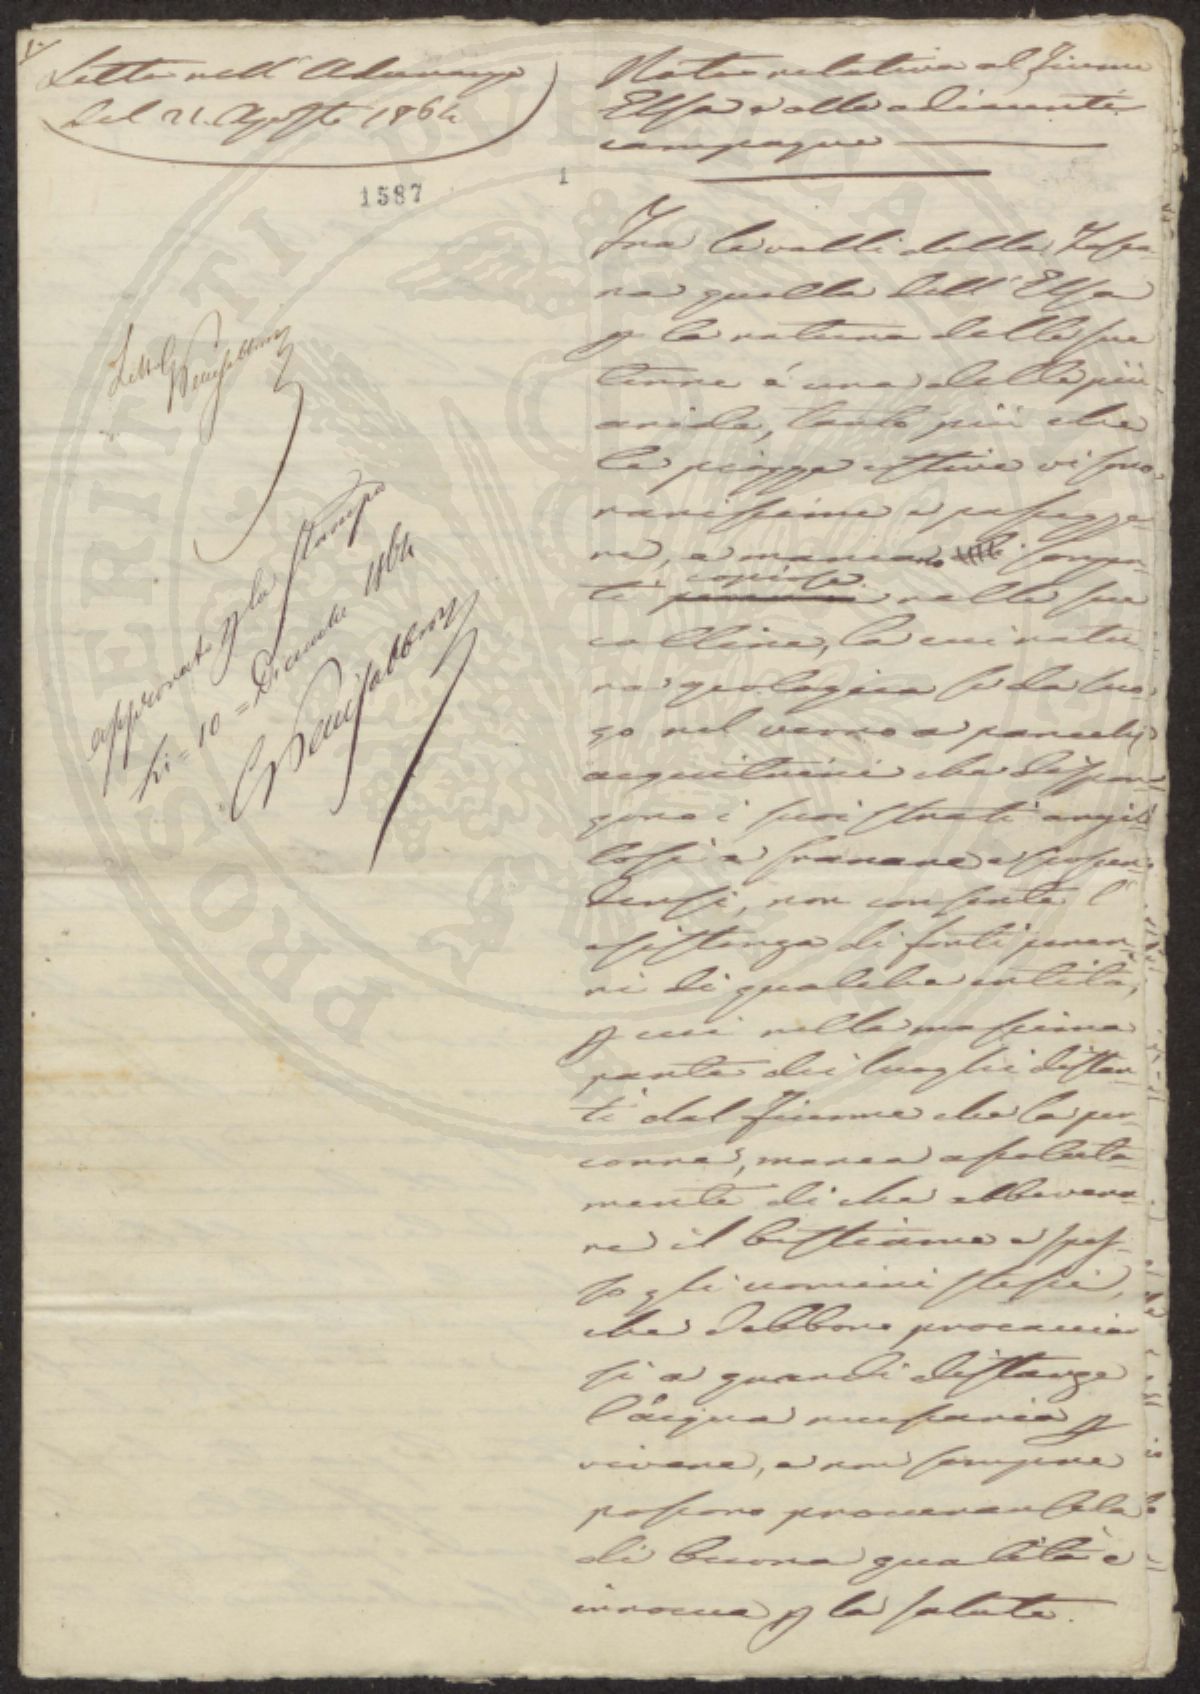 Letta nell' Adunanza
del 21. Agosto 1864
1587
1
Letta
approvata p la stampa
li = 10 = Dicembre 1864
Nota relativa al Fiume
Elsa e alle adiacenti
campagne
Fra le valli della Tosca-
na quella dell' Elsa
p la natura delle sue
terre è una delle più
aride, tanto più che
le piogge estive vi sono
rarissime e passegge-
re, e mancano sorgen-
ti copiose nelle sue
colline, la cui natu
ra geologica se da luo
go nel verno a parechi
acquitrini che dispon
gono i suoi strati argil
losi a franare e scoscen
dersi, non consente l'
esistenza di fonti peren-
ni di qualche entità,
p cui nella massima
parte dei luoghi distan-
ti dal fiume che la per-
corre, manca assoluta-
mente di che abbevera-
re il bestiame e spes-
so gli uomini stessi,
che debbono procacciar
si a grandi distanze
l'acqua necessaria p
vivere, e non sempre
possono procurarsela
di buona qualità e
innocua p la salute.
PROSPERITATI PUBLICAE